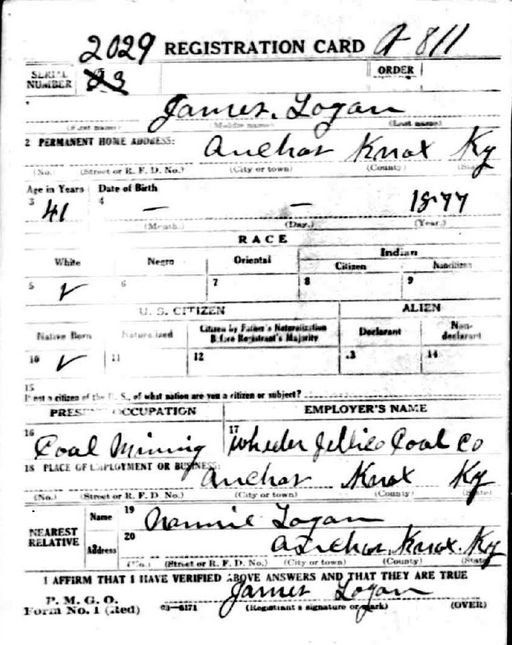 2029 REGISTRATION CARD A 811
SERIAL NUMBER 23 ORDER
James. Logan
(First name) (Middle name) (Last name)
2 PERMANENT HOME ADDRESS: Anchor Knox Ky
(No.) (Street or R. F. D. No.) (City or town) (County) (State)
Age in Years Date of Birth
3 41 4 — — 1877
(Month.) (Day.) (Year.)
RACE
White Negro Oriental Indian
Citizen Noncitizen
5 ✓ 6 7 8 9
U. S. CITIZEN ALIEN
Native Born Naturalized Citizen by Father's Naturalization Before Registrant's Majority Declarant Non-declarant
10 ✓ 11 12 13 14
15
If not a citizen of the U. S., of what nation are you a citizen or subject?
PRESENT OCCUPATION EMPLOYER'S NAME
16 Coal Mining 17 Wheeler Jellico Coal Co
18 PLACE OF EMPLOYMENT OR BUSINESS: Anchor Knox Ky
(No.) (Street or R. F. D. No.) (City or town) (County) (State)
NEAREST RELATIVE Name 19 Nannie Logan
Address 20 Anchor. Knox. Ky
(No.) (Street or R. F. D. No.) (City or town) (County) (State)
I AFFIRM THAT I HAVE VERIFIED ABOVE ANSWERS AND THAT THEY ARE TRUE
P. M. G. O. James Logan
Form No. 1 (Red) 03—6171 (Registrant's signature or mark) (OVER)